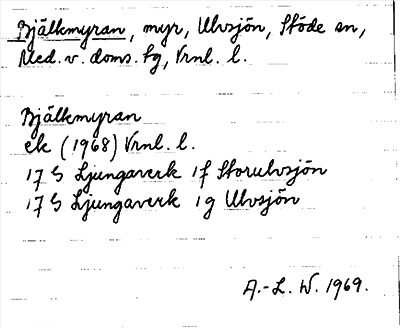 Bjälkmyran, myr, Ulvsjön, Stöde sn,
Med. v. doms. tg, Vrnl. l.
Bjälkmyran
ek (1968) Vrnl. l.
17 G Ljungaverk 1f Storulvsjön
17 G Ljungaverk 1g Ulvsjön
A.-L. W. 1969.